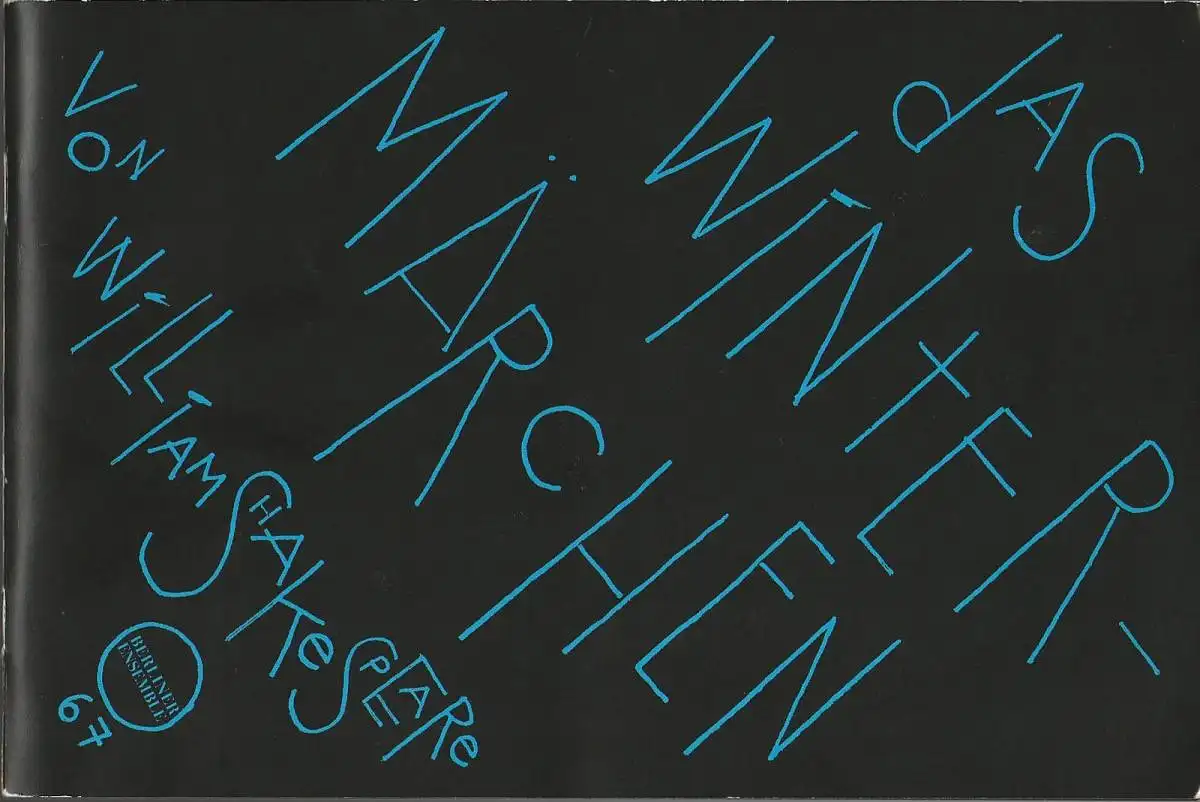 dAS
WiNTER-
MÄRCHEN
VON
WiLLiAM
SHAKeSPEARe
BERLINER
ENSEMBLE
67